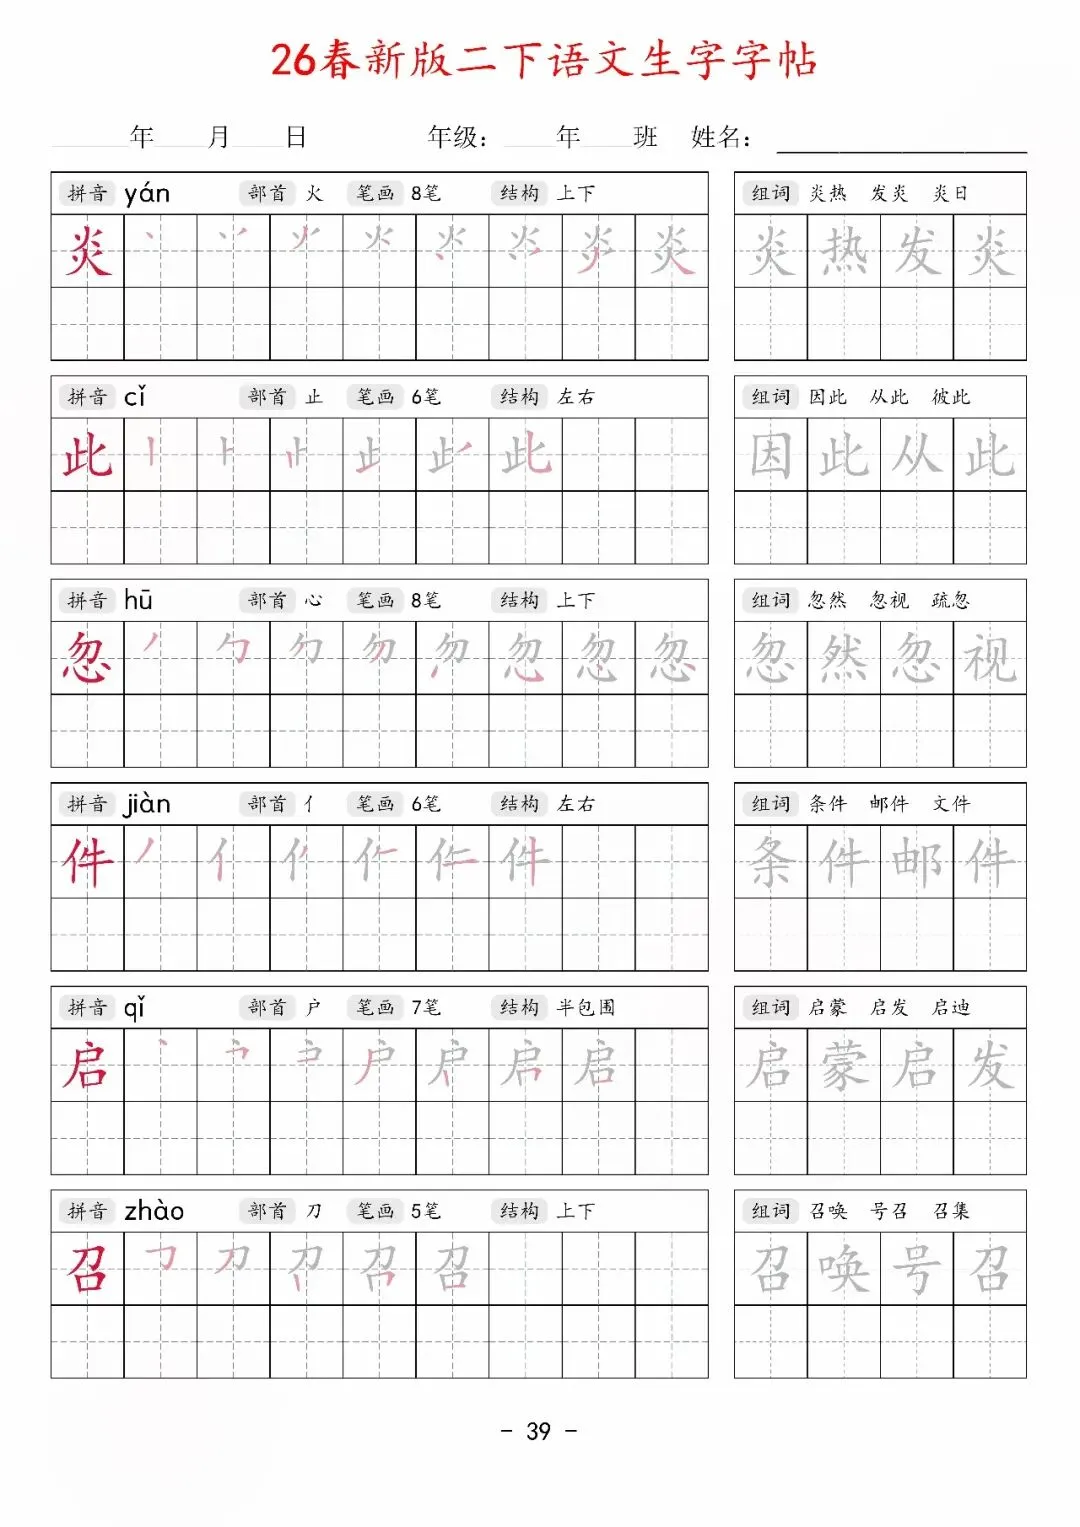 26春新版二下语文生字字帖
年 月 日 年级： 年 班 姓名：
拼音 yán 部首 火 笔画 8笔 结构 上下 组词 炎热 发炎 炎日
炎 炎热发炎
拼音 cǐ 部首 止 笔画 6笔 结构 左右 组词 因此 从此 彼此
此 因此从此
拼音 hū 部首 心 笔画 8笔 结构 上下 组词 忽然 忽视 疏忽
忽 忽然忽视
拼音 jiàn 部首 亻 笔画 6笔 结构 左右 组词 条件 邮件 文件
件 条件邮件
拼音 qǐ 部首 户 笔画 7笔 结构 半包围 组词 启蒙 启发 启迪
启 启蒙启发
拼音 zhào 部首 刀 笔画 5笔 结构 上下 组词 召唤 号召 召集
召 召唤号召
- 39 -